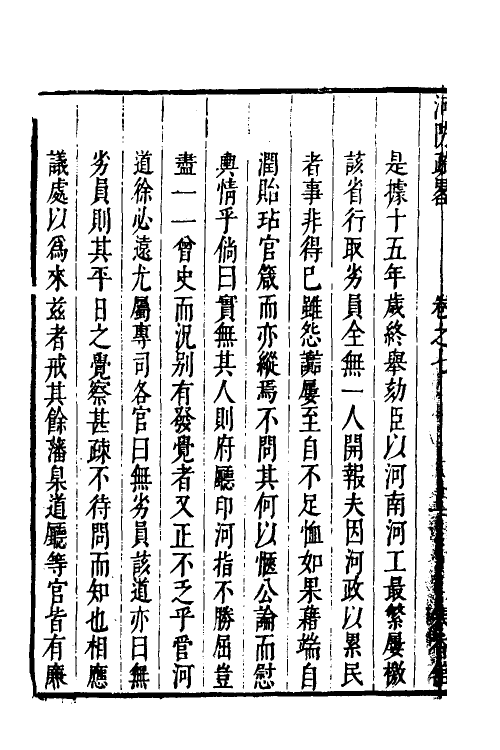 河防疏畧
卷之七
是據十五年歲終舉劾臣以河南河工最繁屢檄
該省行取劣員全無一人開報夫因河政以累民
者事非得已雖怨讟屢至自不足恤如果藉端自
潤貽玷官箴而亦縱焉不問其何以愜公論而慰
輿情乎倘曰實無其人則府廳印河指不勝屈豈
盡一一曾史而況别有發覺者又正不乏乎管河
道徐必遠尤屬專司各官曰無劣員該道亦曰無
劣員則其平日之覺察甚疎不待問而知也相應
議處以爲來兹者戒其餘藩臬道廳等官皆有廉